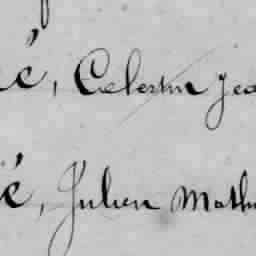 ć, Celestin Jea
ć, Julien Mathu